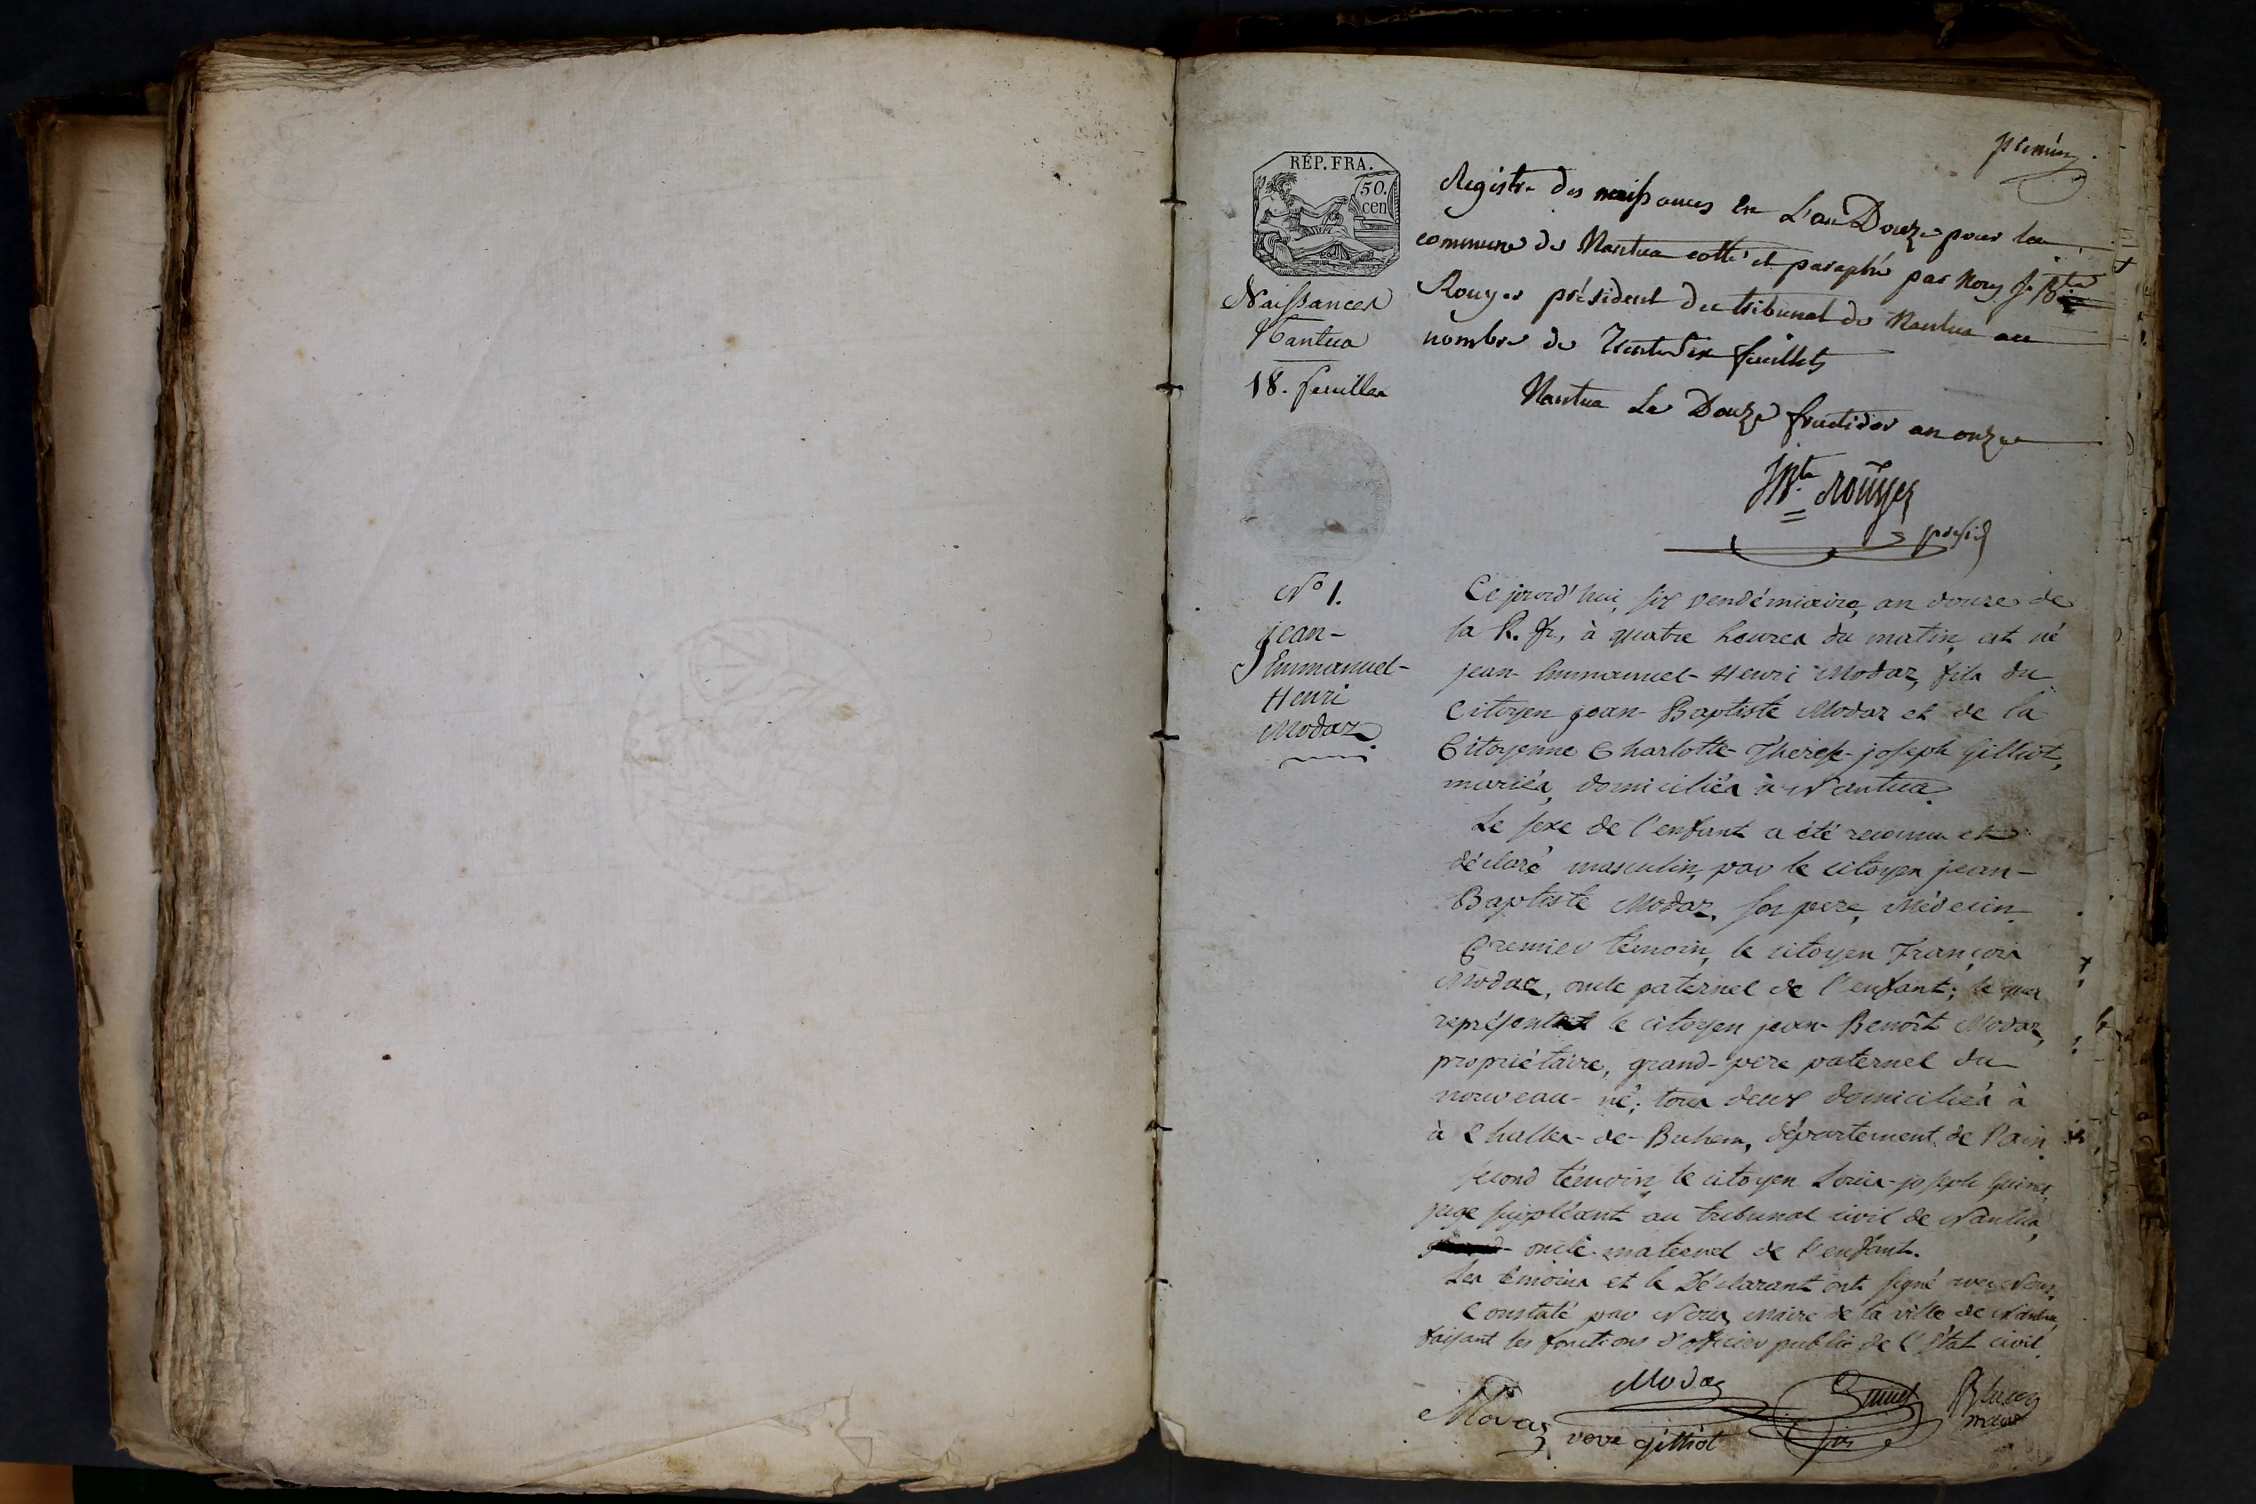 premier
RÉP. FRA.
50.
cen
Naissances
Nantua
18. feuilles
Registre des naissances en L'an Douze pour la
commune de Nantua cotté et paraphé par Nous J. Bte
Rouyer président du tribunal de Nantua au
nombre de feuillets
Nantua Le Douze fructidor an onze
JBte Rouyer
présid
No 1.
jean-
Emmanuel-
Henri
Modaz.
Ce jourd'hui, six vendémiaire, an douze de
la R. fr, à quatre heures du matin, est né
jean-Emmanuel-Henri Modaz, fils du
Citoyen jean-Baptiste Modaz et de la
Citoyenne Charlotte-Therese-joseph gilliot,
mariés, domiciliés à Nantua.
Le sexe de l'enfant a été reconnu et
déclaré masculin, par le citoyen jean-
Baptiste Modaz, son pere, Médecin.
Premier témoin, le citoyen François
Modaz, oncle paternel de l'enfant;
le citoyen jean-Benoît Modaz,
propriétaire, grand-pere paternel du
nouveau-né; tous deux domiciliés à
à Challes-de-, département de l'ain.
second témoin, le citoyen Louis-joseph Guinet,
juge suppléant au tribunal civil de Nantua,
oncle maternel de l'enfant.
Les témoins et le Déclarant ont signé avec Nous.
Constaté par Nous, Maire de la ville de Nantua,
faisant les fonctions d'officier public de l'état civil.
Modaz
Guinet
maire
Modaz
veve gilliot